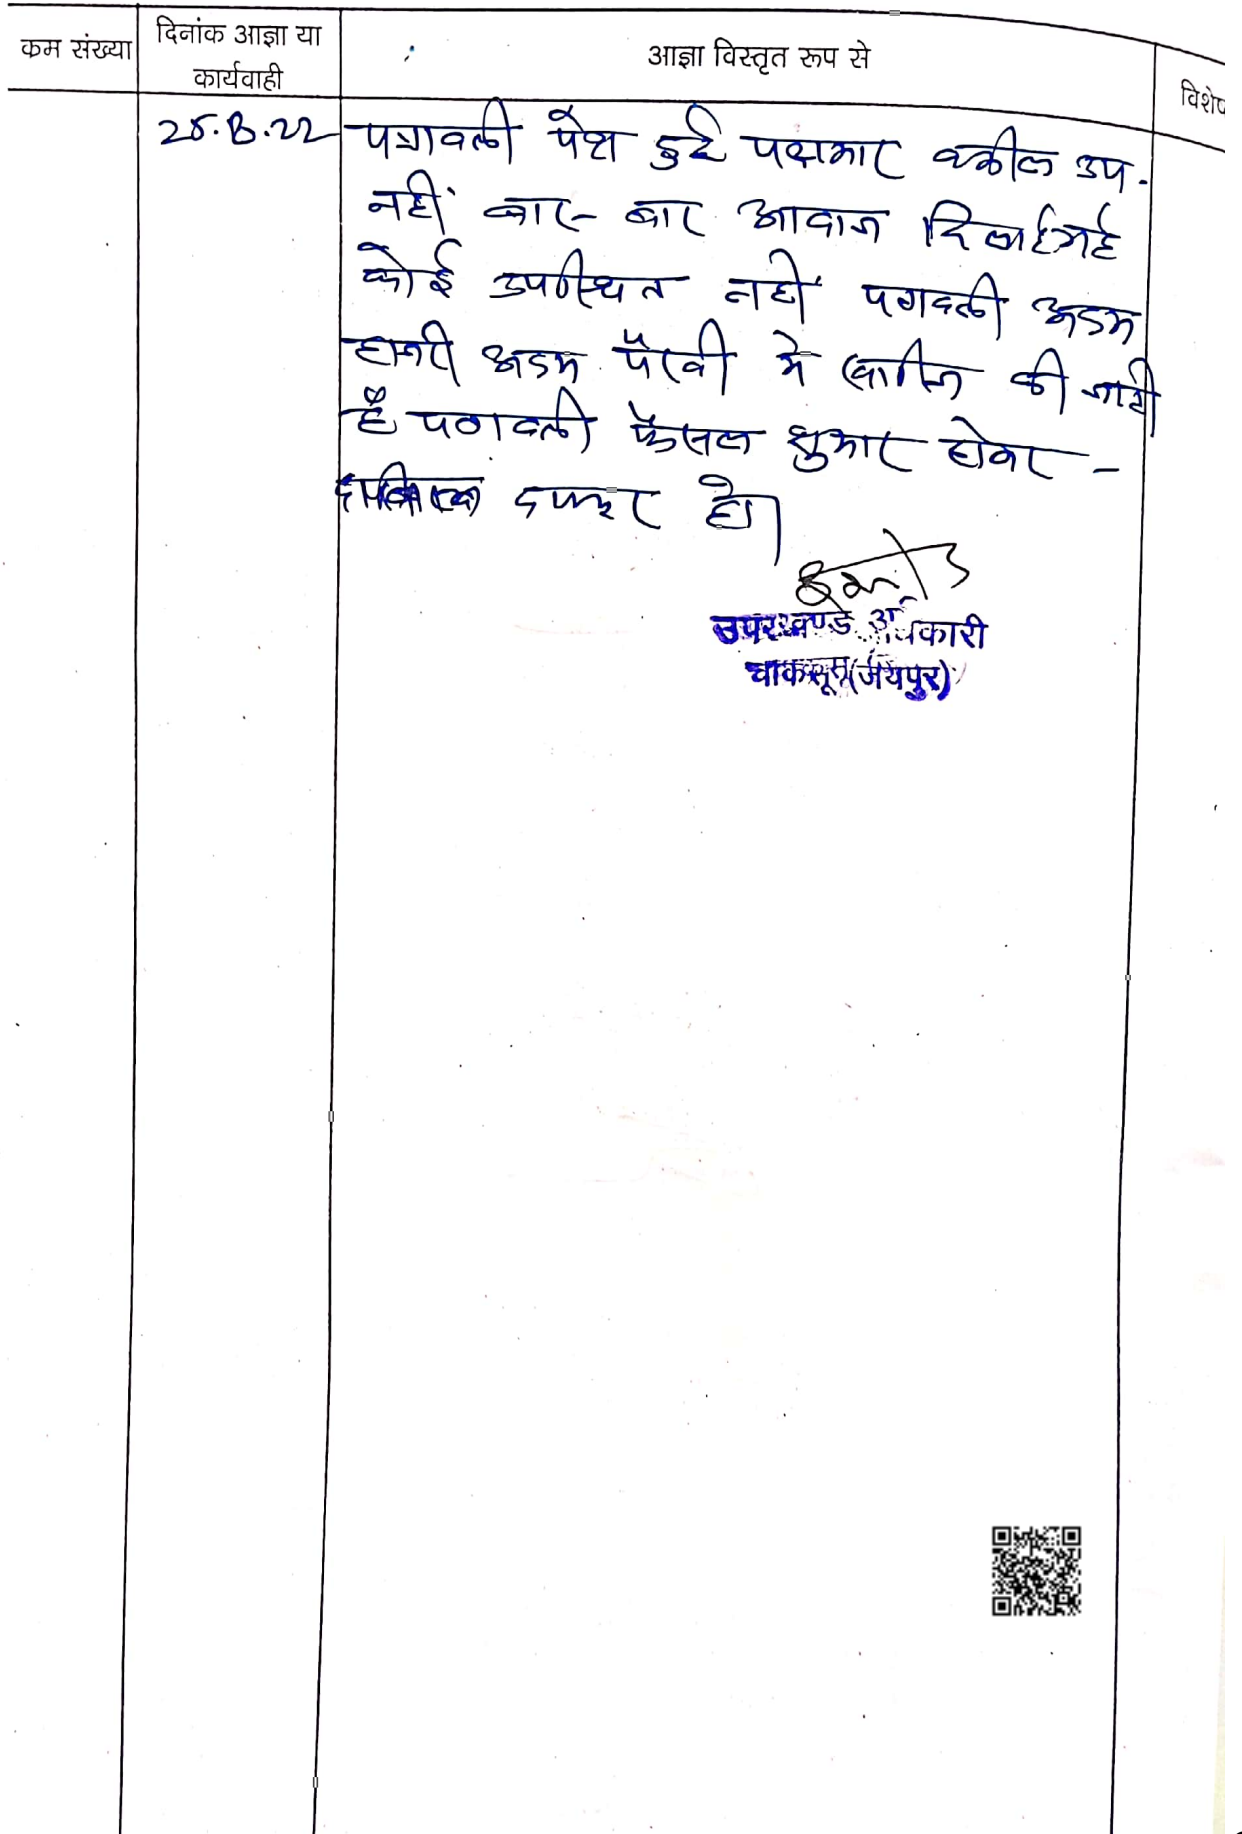 कम संख्या
दिनांक आज्ञा या
कार्यवाही
आज्ञा विस्तृत रूप से
विशेष
पत्रावली पेश हुई पक्षकार वकील उप.
नहीं बार-बार आवाज दिलाई गई
कोई उपस्थित नहीं पत्रावली अदम
हाजरी अदम पैरवी में खारीज की जाती
है पत्रावली फैसल शुमार होकर -
दफ्तर हो।
उपखण्ड अधिकारी
चाकसू (जयपुर)